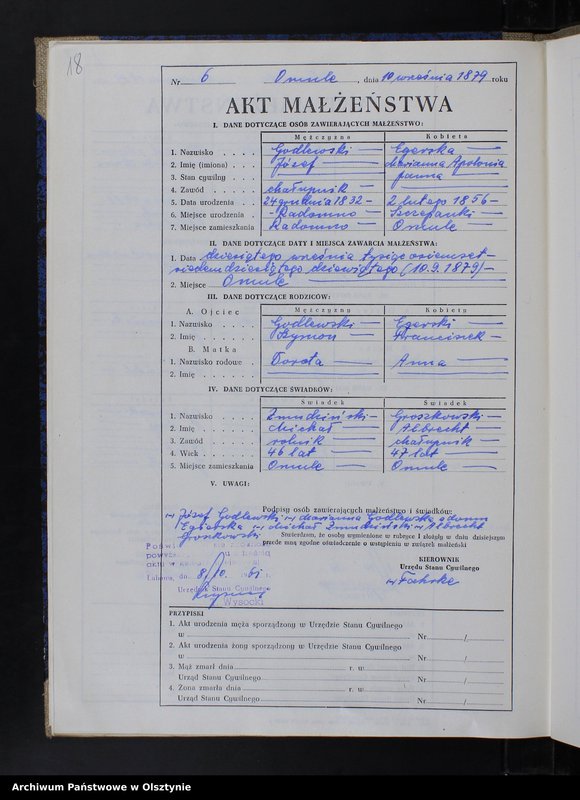 18
Nr 6 Omule, dnia 10 września 1879 roku
AKT MAŁŻEŃSTWA
I. DANE DOTYCZĄCE OSÓB ZAWIERAJĄCYCH MAŁŻEŃSTWO:
Mężczyzna Kobieta
1. Nazwisko Godlewski — Egerska —
2. Imię (imiona) Józef — Marianna Apolonia
3. Stan cywilny — panna —
4. Zawód chałupnik — —
5. Data urodzenia 24 grudnia 1832 - 2 lutego 1856 -
6. Miejsce urodzenia - Radomno — Szczepanki —
7. Miejsce zamieszkania Radomno — Omule —
II. DANE DOTYCZĄCE DATY I MIEJSCA ZAWARCIA MAŁŻEŃSTWA:
1. Data dziesiątego września tysiąc osiemset-
siedemdziesiątego dziewiątego (10.9.1879)-
2. Miejsce Omule
III. DANE DOTYCZĄCE RODZICÓW:
Mężczyzna Kobieta
A. Ojciec
1. Nazwisko Godlewski — Egerski —
2. Imię Szymon — Franciszek -
B. Matka
1. Nazwisko rodowe Dorota — Anna —
2. Imię — —
IV. DANE DOTYCZĄCE ŚWIADKÓW:
Świadek Świadek
1. Nazwisko Żmudziński - Groszkowski -
2. Imię Michał — Albrecht —
3. Zawód rolnik — chałupnik —
4. Wiek 46 lat — 47 lat —
5. Miejsce zamieszkania Omule — Omule —
V. UWAGI:
Podpisy osób zawierających małżeństwo i świadków:
Józef Godlewski Marianna Godlewska z domu
Egierska Michał Żmudziński Albrecht
Groszkowski
Stwierdzam, że osoby wymienione w rubryce I złożyły w dniu dzisiejszym
przede mną zgodne oświadczenie o wstąpieniu w związek małżeński
KIEROWNIK
Urzędu Stanu Cywilnego
Lubawa, dn. 8/10. 61 r.
Urzędnik Stanu Cywilnego
Wysocki
PRZYPISKI
1. Akt urodzenia męża sporządzony w Urzędzie Stanu Cywilnego
w Nr /
2. Akt urodzenia żony sporządzony w Urzędzie Stanu Cywilnego
w Nr /
3. Mąż zmarł dnia r. w
Urząd Stanu Cywilnego Nr /
4. Żona zmarła dnia r. w
Urząd Stanu Cywilnego Nr /
Archiwum Państwowe w Olsztynie